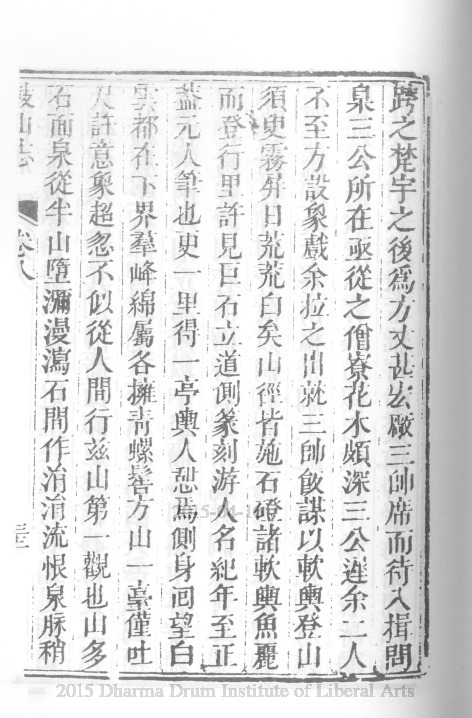 跨之梵宇之後為方丈甚宏厰三帥席而待入揖問
泉三公所在亟從之僧寮花木頗深三公遲余二人
不至方設象戲余拉之出就三帥飯謀以軟輿登山
須臾霧昇日荒荒白矣山徑皆施石磴諸軟輿魚麗
而登行里許見巨石立道側篆刻游人名紀年至正
蓋元人筆也更一里得一亭輿人憩焉側身囘望白
雲都在下界羣峰綿屬各擁青螺髻方山一臺僅吐
尺許意象超忽不似從人間行茲山第一觀也山多
石面泉從半山墮瀰漫瀉石間作㳙㳙流恨泉脉稍
鼓山志 卷八
2015-04-1
2015 Dharma Drum Institute of Liberal Arts